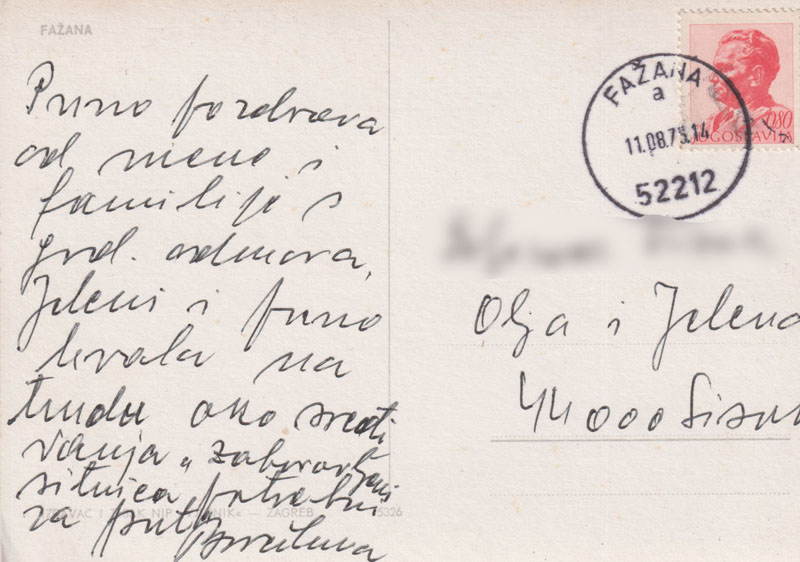 FAŽANA
Puno pozdrava
od mene i
familije s
god. odmora,
Jeleni i puno
hvala na
trudu oko sredi
vanja "zaboravljeni
sitnica potrebni
za put
IZDAVAC I NIP ZAGREB 5326
FAŽANA
a
11.08.75.14
52212
0,80
JUGOSLAVIJA
Olja i Jelena
44000 Sisak